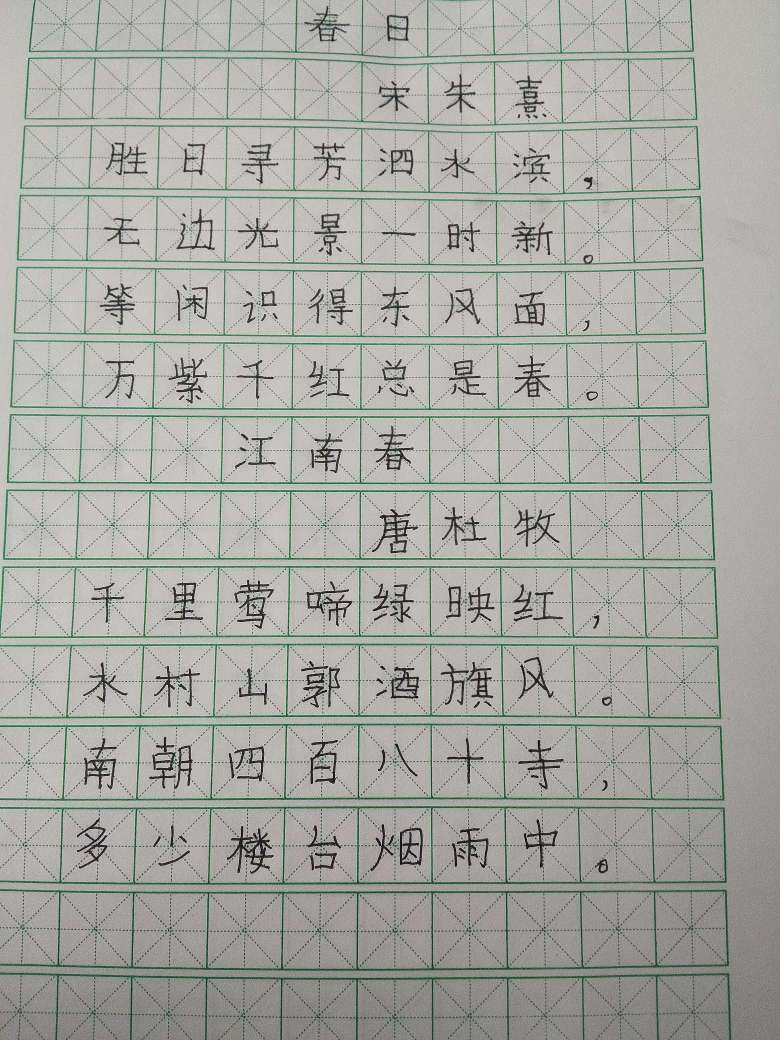 春日
宋朱熹
胜日寻芳泗水滨，
无边光景一时新。
等闲识得东风面，
万紫千红总是春。
江南春
唐杜牧
千里莺啼绿映红，
水村山郭酒旗风。
南朝四百八十寺，
多少楼台烟雨中。